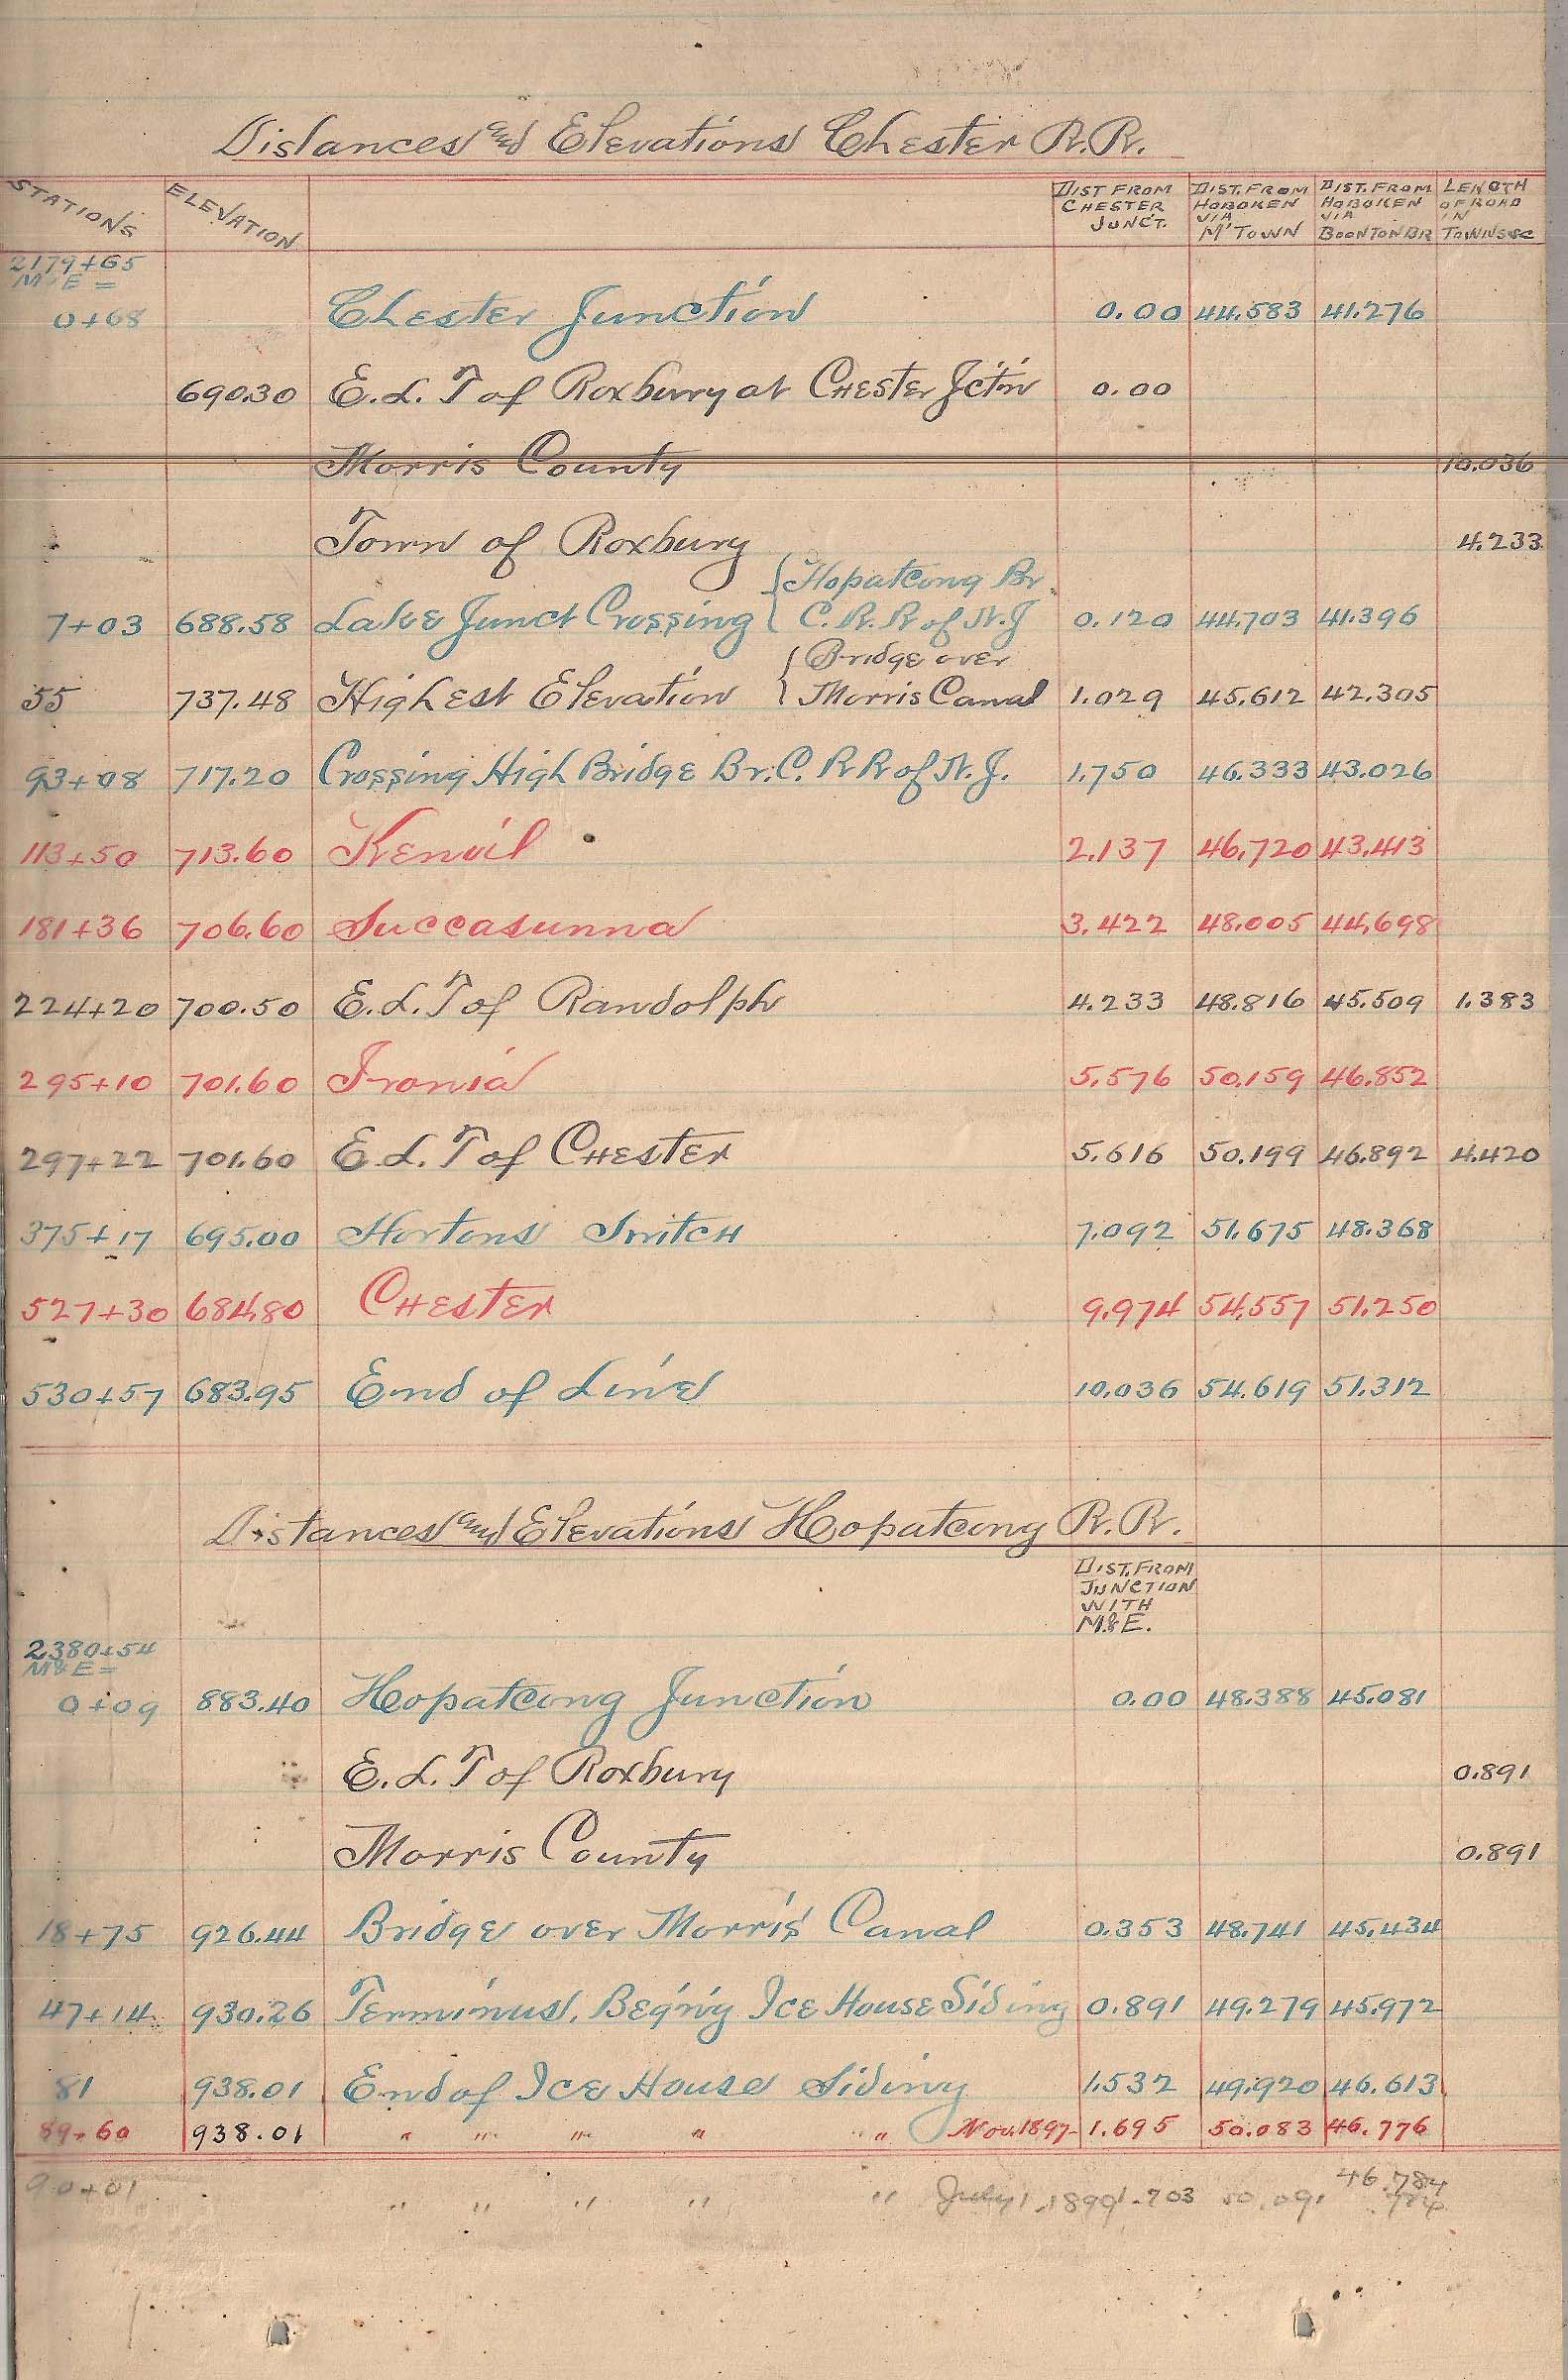 Distances and Elevations Chester R.R.
STATIONS ELEVATION DIST FROM CHESTER JUNCT. DIST. FROM HOBOKEN VIA M'TOWN DIST. FROM HOBOKEN VIA BOONTON BR LENGTH OF ROAD IN TOWNS &c
2179+65
M&E =
0+68 Chester Junction 0.00 44.583 41.276
690.30 E.L. T of Roxbury at Chester Jct'n 0.00
Morris County 10.036
Town of Roxbury 4.233
7+03 688.58 Lake Junct Crossing { Hopatcong Br. C.R.R of N.J 0.120 44.703 41.396
55 737.48 Highest Elevation { Bridge over Morris Canal 1.029 45.612 42.305
93+08 717.20 Crossing High Bridge Br. C. R R of N.J. 1.750 46.333 43.026
113+50 713.60 Kenvil 2.137 46.720 43.413
181+36 706.60 Succasunna 3.422 48.005 44.698
224+20 700.50 E.L. T of Randolph 4.233 48.816 45.509 1.383
295+10 701.60 Ironia 5.576 50.159 46.852
297+22 701.60 E.L. T of Chester 5.616 50.199 46.892 4.420
375+17 695.00 Hortons Switch 7.092 51.675 48.368
527+30 684.80 Chester 9.974 54.557 51.250
530+57 683.95 End of Line 10.036 54.619 51.312
Distances and Elevations Hopatcong R.R.
DIST. FROM JUNCTION WITH M.&E.
2380+54
M&E =
0+09 883.40 Hopatcong Junction 0.00 48.388 45.081
E.L. T of Roxbury 0.891
Morris County 0.891
18+75 926.44 Bridge over Morris Canal 0.353 48.741 45.434
47+14 930.26 Terminus. Beg'n'g Ice House Siding 0.891 49.279 45.972
81 938.01 End of Ice House Siding 1.532 49.920 46.613
89+60 938.01 " " " " " Nov. 1897 1.695 50.083 46.776
90+01 " " " " " July 1, 1899 1.703 50.091 46.784
784